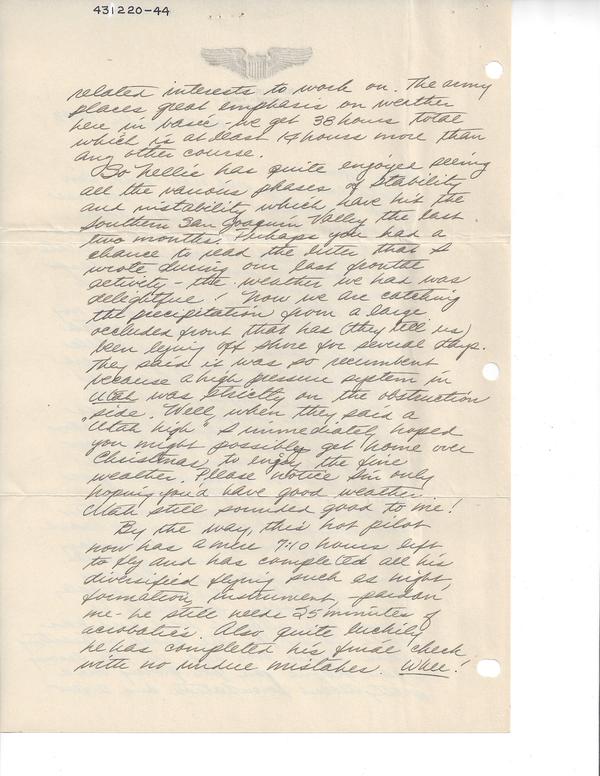 431220-44
related interests to work on. The army
places great emphasis on weather
here in basic - we get 38 hours total
which is at least 14 hours more than
any other course.
So Nellie has quite enjoyed seeing
all the various phases of stability
and instability which have hit the
Southern San Joaquin Valley the last
two months. Perhaps you had a
chance to read the letter that I
wrote during our last frontal
activity - the weather we had was
delightful! Now we are catching
the precipitation from a large
occluded front that has (they tell us)
been lying off shore for several days.
They said it was so recumbent
because a high pressure system in
Utah was strictly on the obstruction
side. Well, when they said a
"Utah high" I immediately hoped
you might possibly get home over
Christmas to enjoy the fine
weather. Please notice I'm only
hoping you'd have good weather.
Utah still sounded good to me!
By the way, this hot pilot
now has a mere 7:10 hours left
to fly and has completed all his
diversified flying such as night,
formation, instrument, - pardon
me - he still needs 25 minutes of
acrobatics. Also quite luckily
he has completed his final check
with no undue mistakes. Whee!